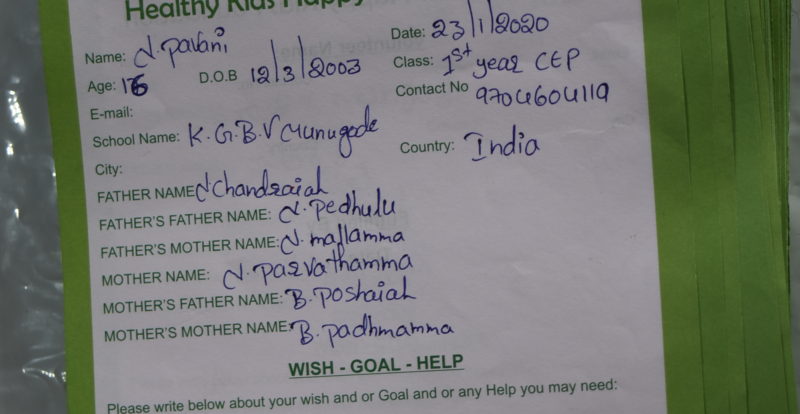 Healthy Kids Happy
Date: 23/1/2020
Name: N. pavani
Class: 1st year CEP
Age: 16 D.O.B 12/3/2003
Contact No 9704604119
E-mail:
School Name: K.G.B.V Munugode
Country: India
City:
FATHER NAME N Chandraiah
FATHER'S FATHER NAME: N. Pedhulu
FATHER'S MOTHER NAME: N. mallamma
MOTHER NAME: N. parvathamma
MOTHER'S FATHER NAME: B. Poshaiah
MOTHER'S MOTHER NAME: B. padhmamma
WISH - GOAL - HELP
Please write below about your wish and or Goal and or any Help you may need: